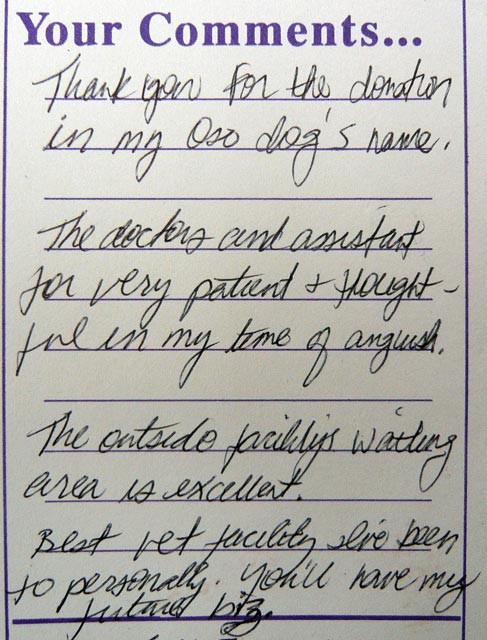 Your Comments...
Thank you for the donation
in my Oso dog's name.
The doctors and assistant
for very patient + thought-
ful in my time of anguish.
The outside facility's waiting
area is excellent.
Best vet facility I've been
to personally. You'll have my
future biz.